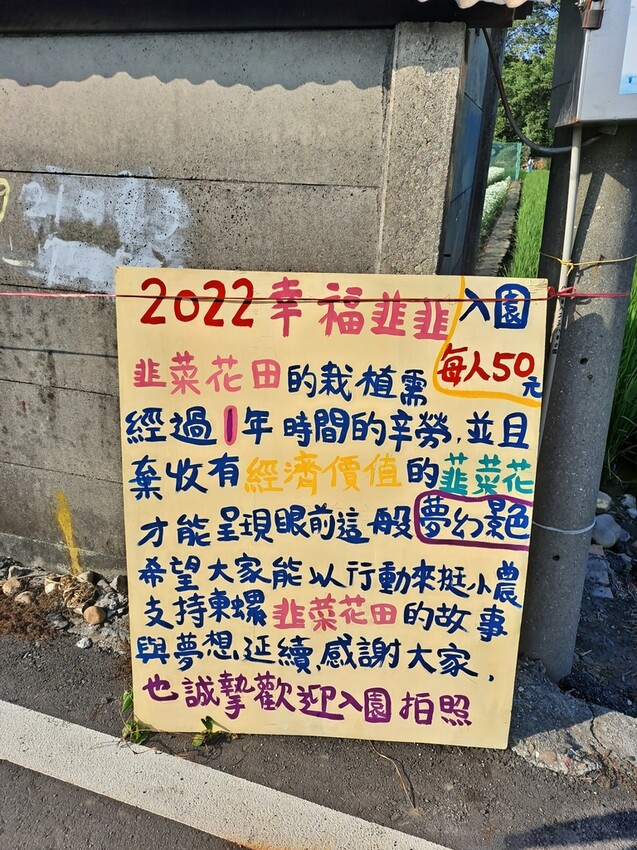 2022幸福韭韭
入園
每人50元
韭菜花田的栽植需
經過1年時間的辛勞,並且
棄收有經濟價值的韭菜花
才能呈現眼前這般夢幻景色
希望大家能以行動來挺小農
支持東螺韭菜花田的故事
與夢想延續,感謝大家,
也誠摯歡迎入園拍照